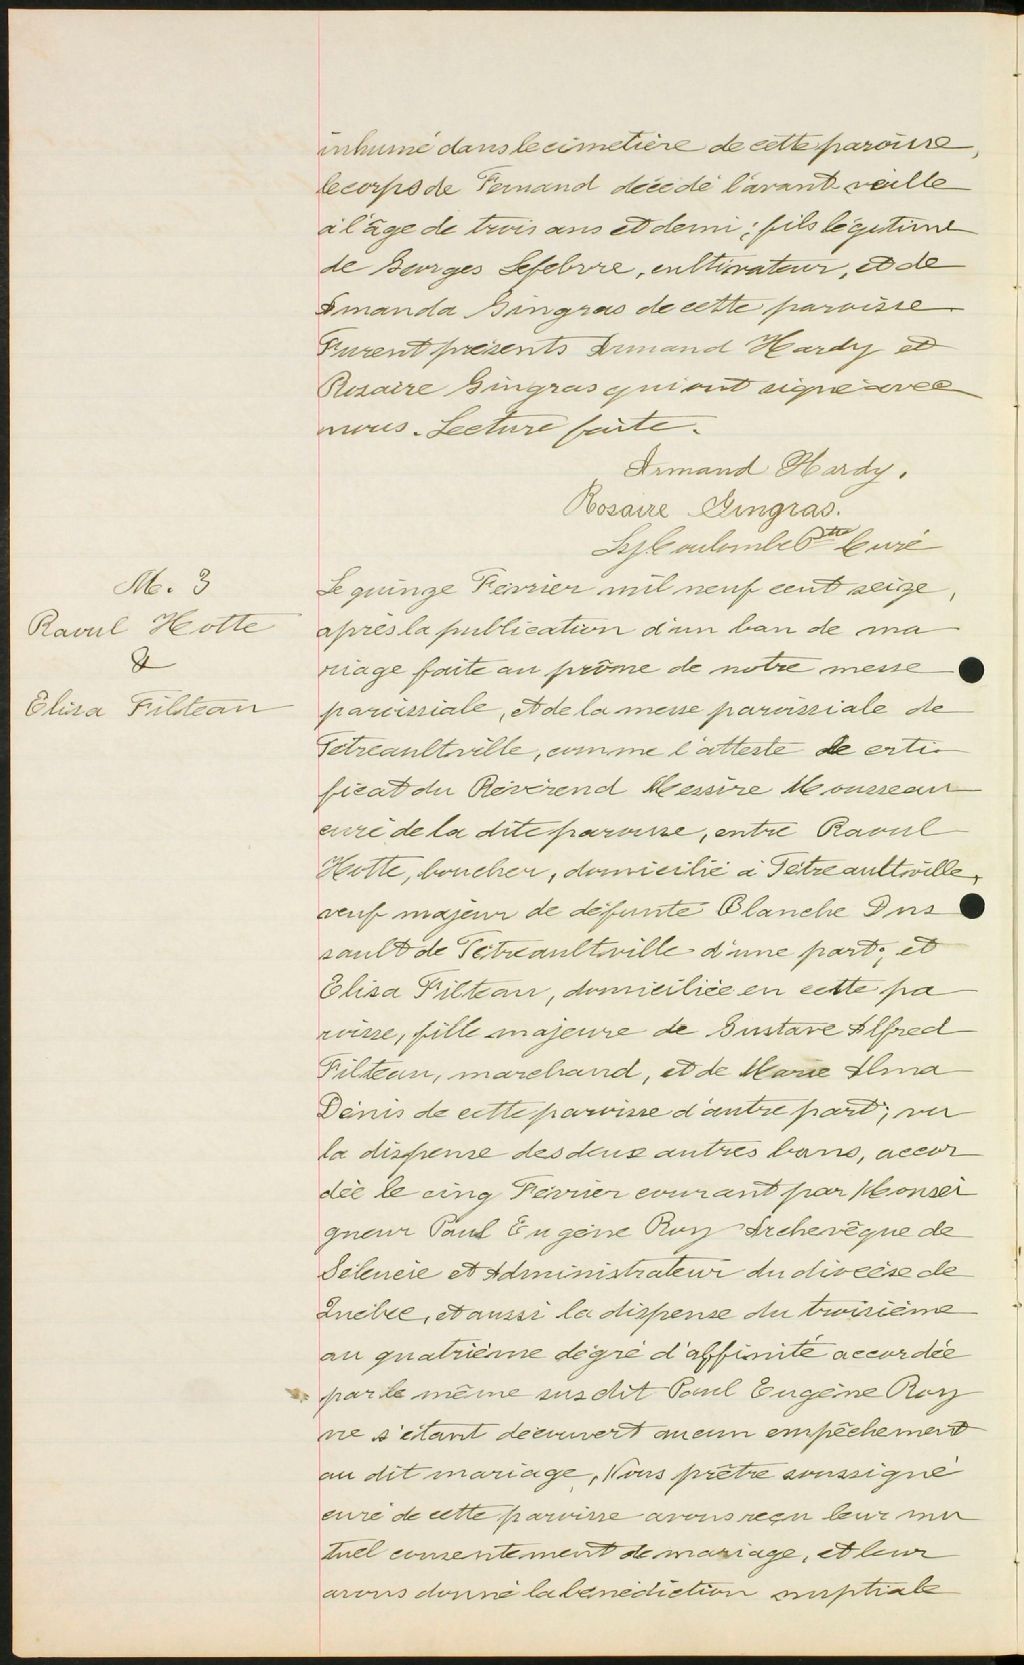 inhumé dans le cimetière de cette paroisse,
le corps de Fernand décédé l'avant-veille
à l'âge de trois ans et demi; fils légitime
de Georges Lefebvre, cultivateur, et de
Amanda Gingras de cette paroisse
Furent présents Armand Hardy et
Rosaire Gingras qui ont signé avec
nous. Lecture faite.
Armand Hardy.
Rosaire Gingras.
Coulombe Ptre Curé
M. 3
Raoul Hotte
&
Elisa Filteau
Le quinze Février mil neuf cent seize,
après la publication d'un ban de ma
riage faite au prône de notre messe
paroissiale, et de la messe paroissiale de
Tétreaultville, comme l'atteste le certi-
ficat du Révérend Messire Mousseau
curé de la dite paroisse, entre Raoul
Hotte, boucher, domicilié à Tétreaultville,
veuf majeur de défunte Blanche Dus
sault de Tétreaultville d'une part; et
Elisa Filteau, domiciliée en cette pa
roisse, fille majeure de Gustave Alfred
Filteau, marchand, et de Marie Alma
Dénis de cette paroisse d'autre part; vu
la dispense des deux autres bans, accor
dée le cinq Février courant par Monsei
gneur Paul Eugène Roy Archevêque de
Séleucie et Administrateur du diocèse de
Québec, et aussi la dispense du troisième
au quatrième dégré d'affinité accordée
par le même susdit Paul Eugène Roy
ne s'étant découvert aucun empêchement
au dit mariage, Nous prêtre soussigné
curé de cette paroisse avons reçu leur mu
tuel consentement de mariage, et leur
avons donné la bénédiction nuptiale